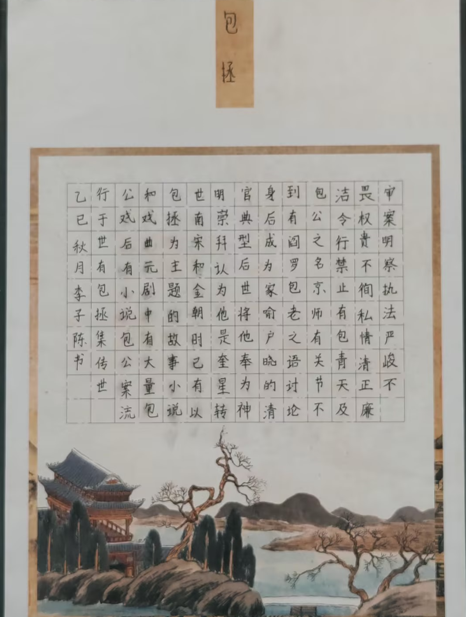 包拯
审案明察执法严峻不
畏权贵不徇私情清正廉
洁令行禁止有包青天及
包公之名京师有关节不
到有阎罗包老之语讨论
身后成为家喻户晓的清
官典型后世将他奉为神
明崇拜认为他是奎星转
世南宋和金朝时已有以
包拯为主题的故事小说
和戏曲元剧中有大量包
公戏后有小说包公案流
行于世有包拯集传世
乙巳秋月李子陈书